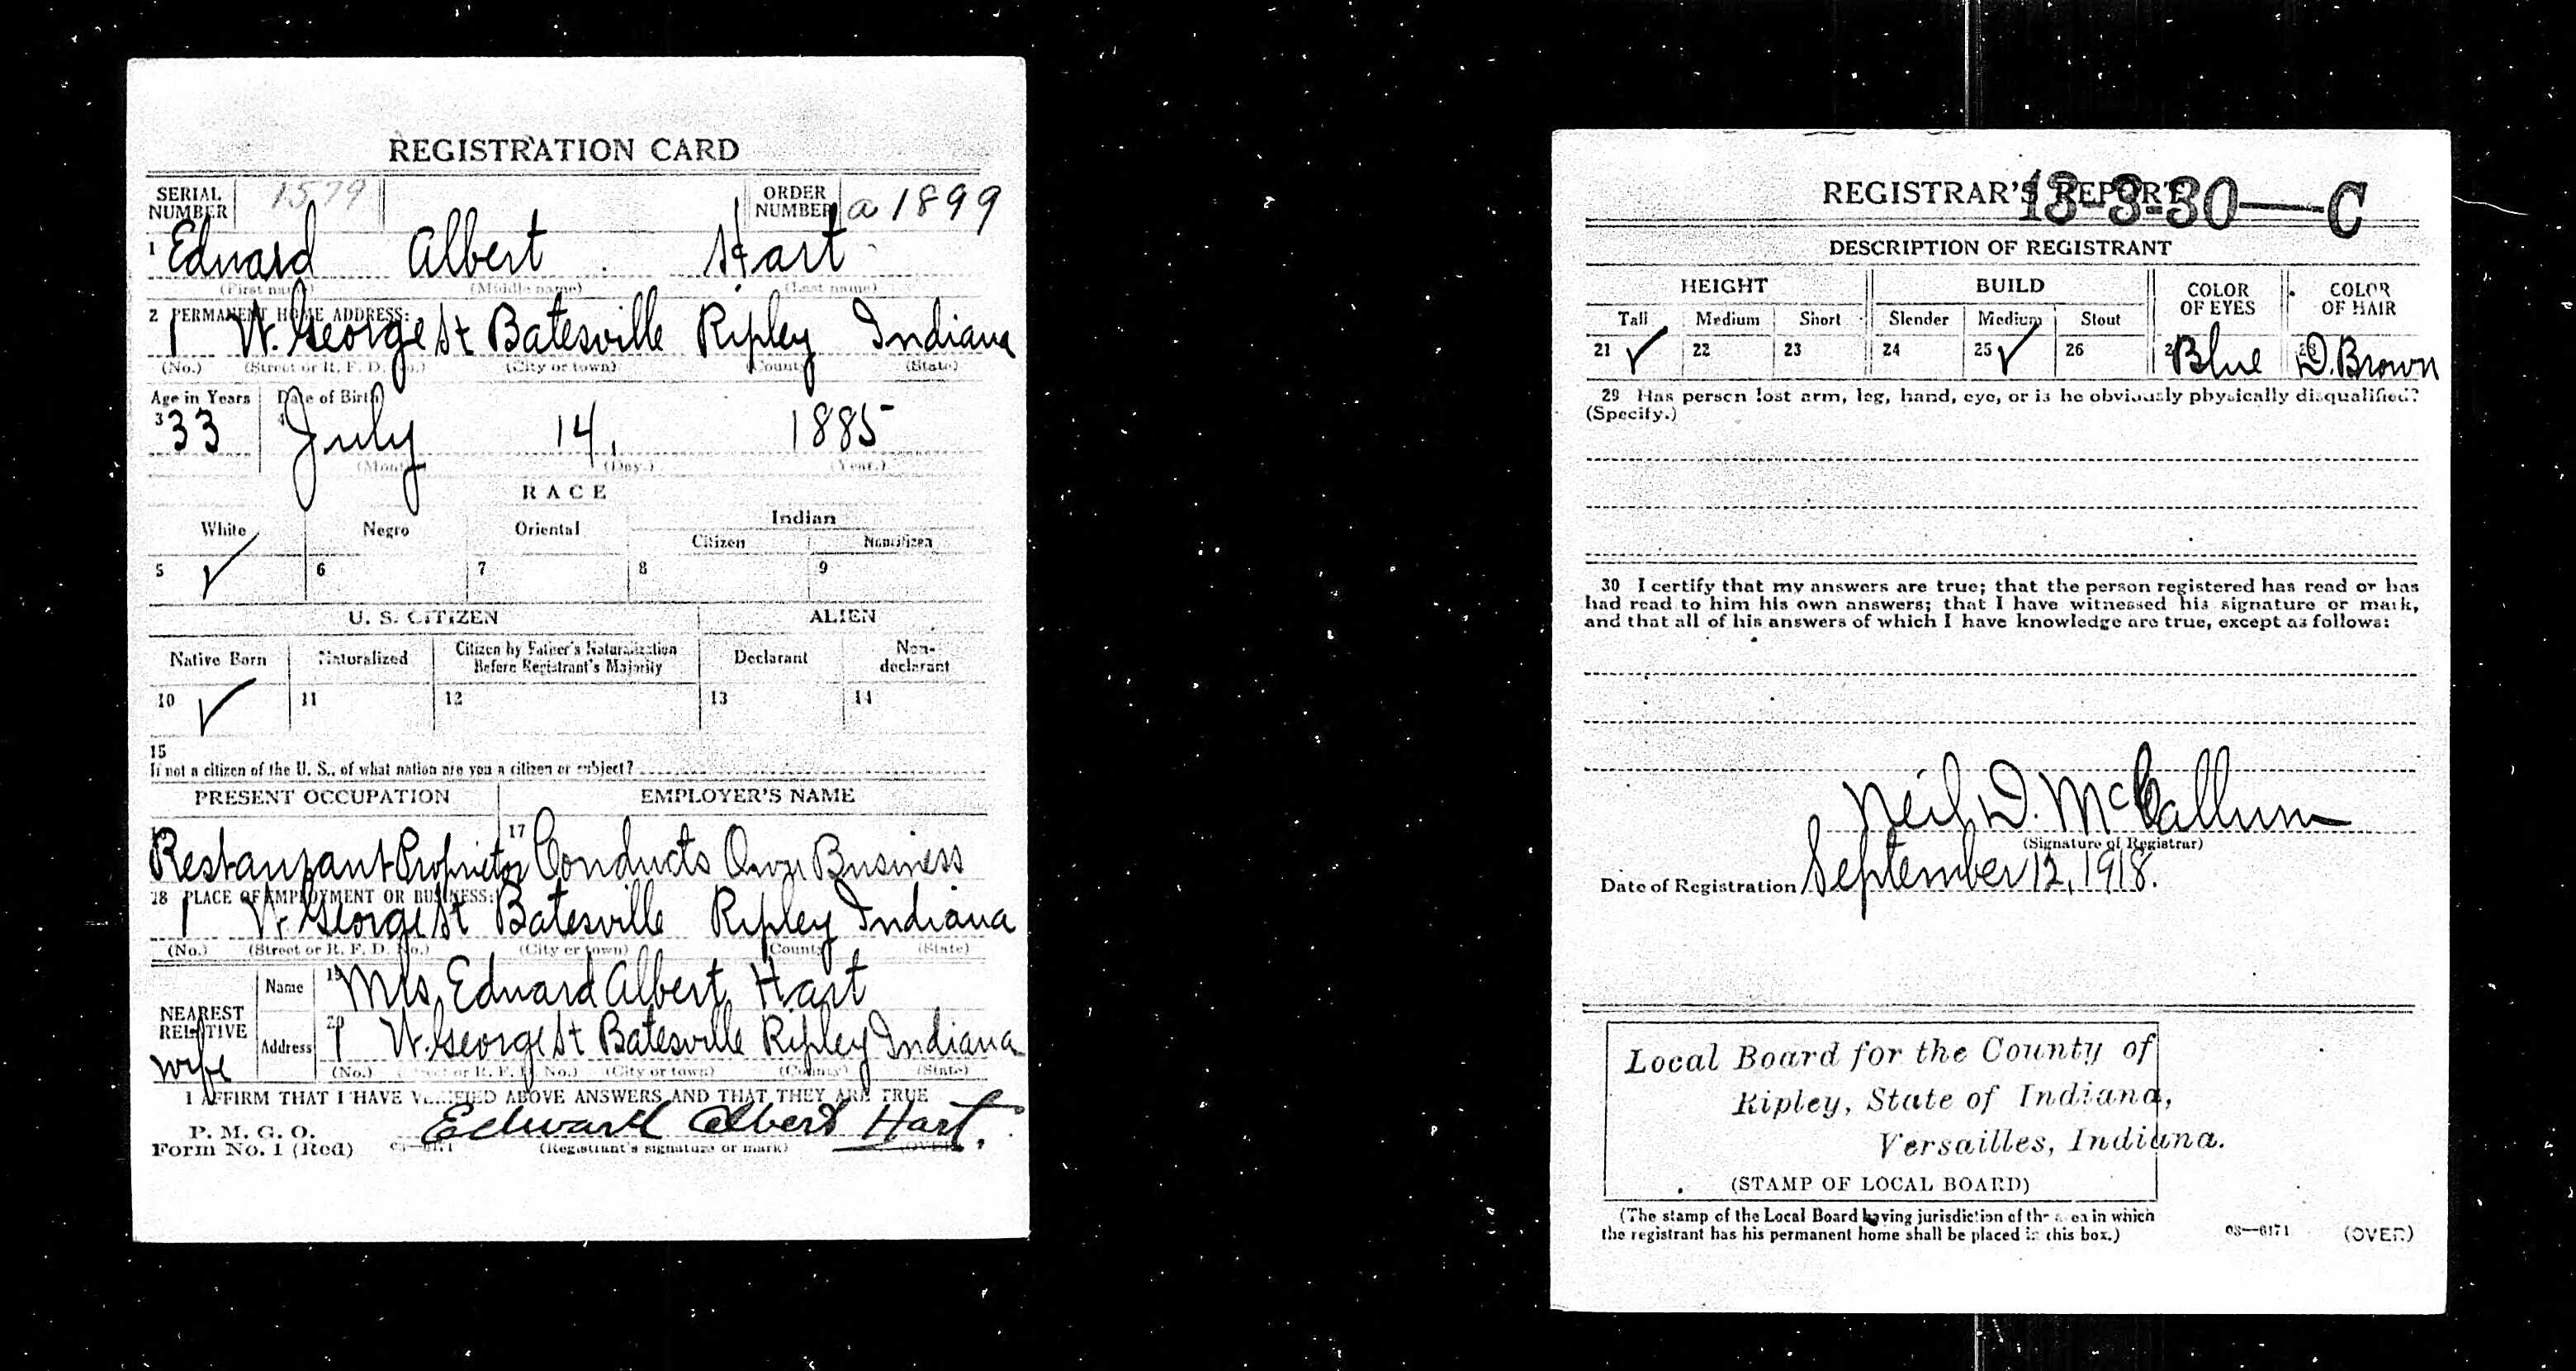 REGISTRATION CARD
SERIAL NUMBER 1579 ORDER NUMBER a 1899
1 Edward Albert Hart
(First name) (Middle name) (Last name)
2 PERMANENT HOME ADDRESS:
1 W. George St Batesville Ripley Indiana
(No.) (Street or R. F. D. No.) (City or town) (County) (State)
Age in Years Date of Birth
3 33 4 July 14, 1885
(Month.) (Day.) (Year.)
RACE
White Negro Oriental Indian
Citizen Noncitizen
5 ✓ 6 7 8 9
U. S. CITIZEN ALIEN
Native Born Naturalized Citizen by Father's Naturalization Before Registrant's Majority Declarant Non-declarant
10 ✓ 11 12 13 14
15
If not a citizen of the U. S., of what nation are you a citizen or subject?
PRESENT OCCUPATION EMPLOYER'S NAME
Restaurant Proprietor 17 Conducts Own Business
18 PLACE OF EMPLOYMENT OR BUSINESS:
1 W. George St Batesville Ripley Indiana
(No.) (Street or R. F. D. No.) (City or town) (County) (State)
NEAREST RELATIVE wife
Name 19 Mrs. Edward Albert Hart
Address 20 1 W. George St Batesville Ripley Indiana
(No.) (Street or R. F. D. No.) (City or town) (County) (State)
I AFFIRM THAT I HAVE VERIFIED ABOVE ANSWERS AND THAT THEY ARE TRUE
P. M. G. O.
Form No. 1 (Red) Edward Albert Hart.
(Registrant's signature or mark) (OVER)
REGISTRAR'S REPORT
13-3-30—C
DESCRIPTION OF REGISTRANT
HEIGHT BUILD COLOR OF EYES COLOR OF HAIR
Tall Medium Short Slender Medium Stout
21 ✓ 22 23 24 25 ✓ 26 Blue D. Brown
29 Has person lost arm, leg, hand, eye, or is he obviously physically disqualified?
(Specify.)
30 I certify that my answers are true; that the person registered has read or has
had read to him his own answers; that I have witnessed his signature or mark,
and that all of his answers of which I have knowledge are true, except as follows:
Neil D. McCallum
(Signature of Registrar)
Date of Registration September 12, 1918.
Local Board for the County of
Ripley, State of Indiana,
Versailles, Indiana.
(STAMP OF LOCAL BOARD)
(The stamp of the Local Board having jurisdiction of the area in which
the registrant has his permanent home shall be placed in this box.)
03—6171 (OVER)